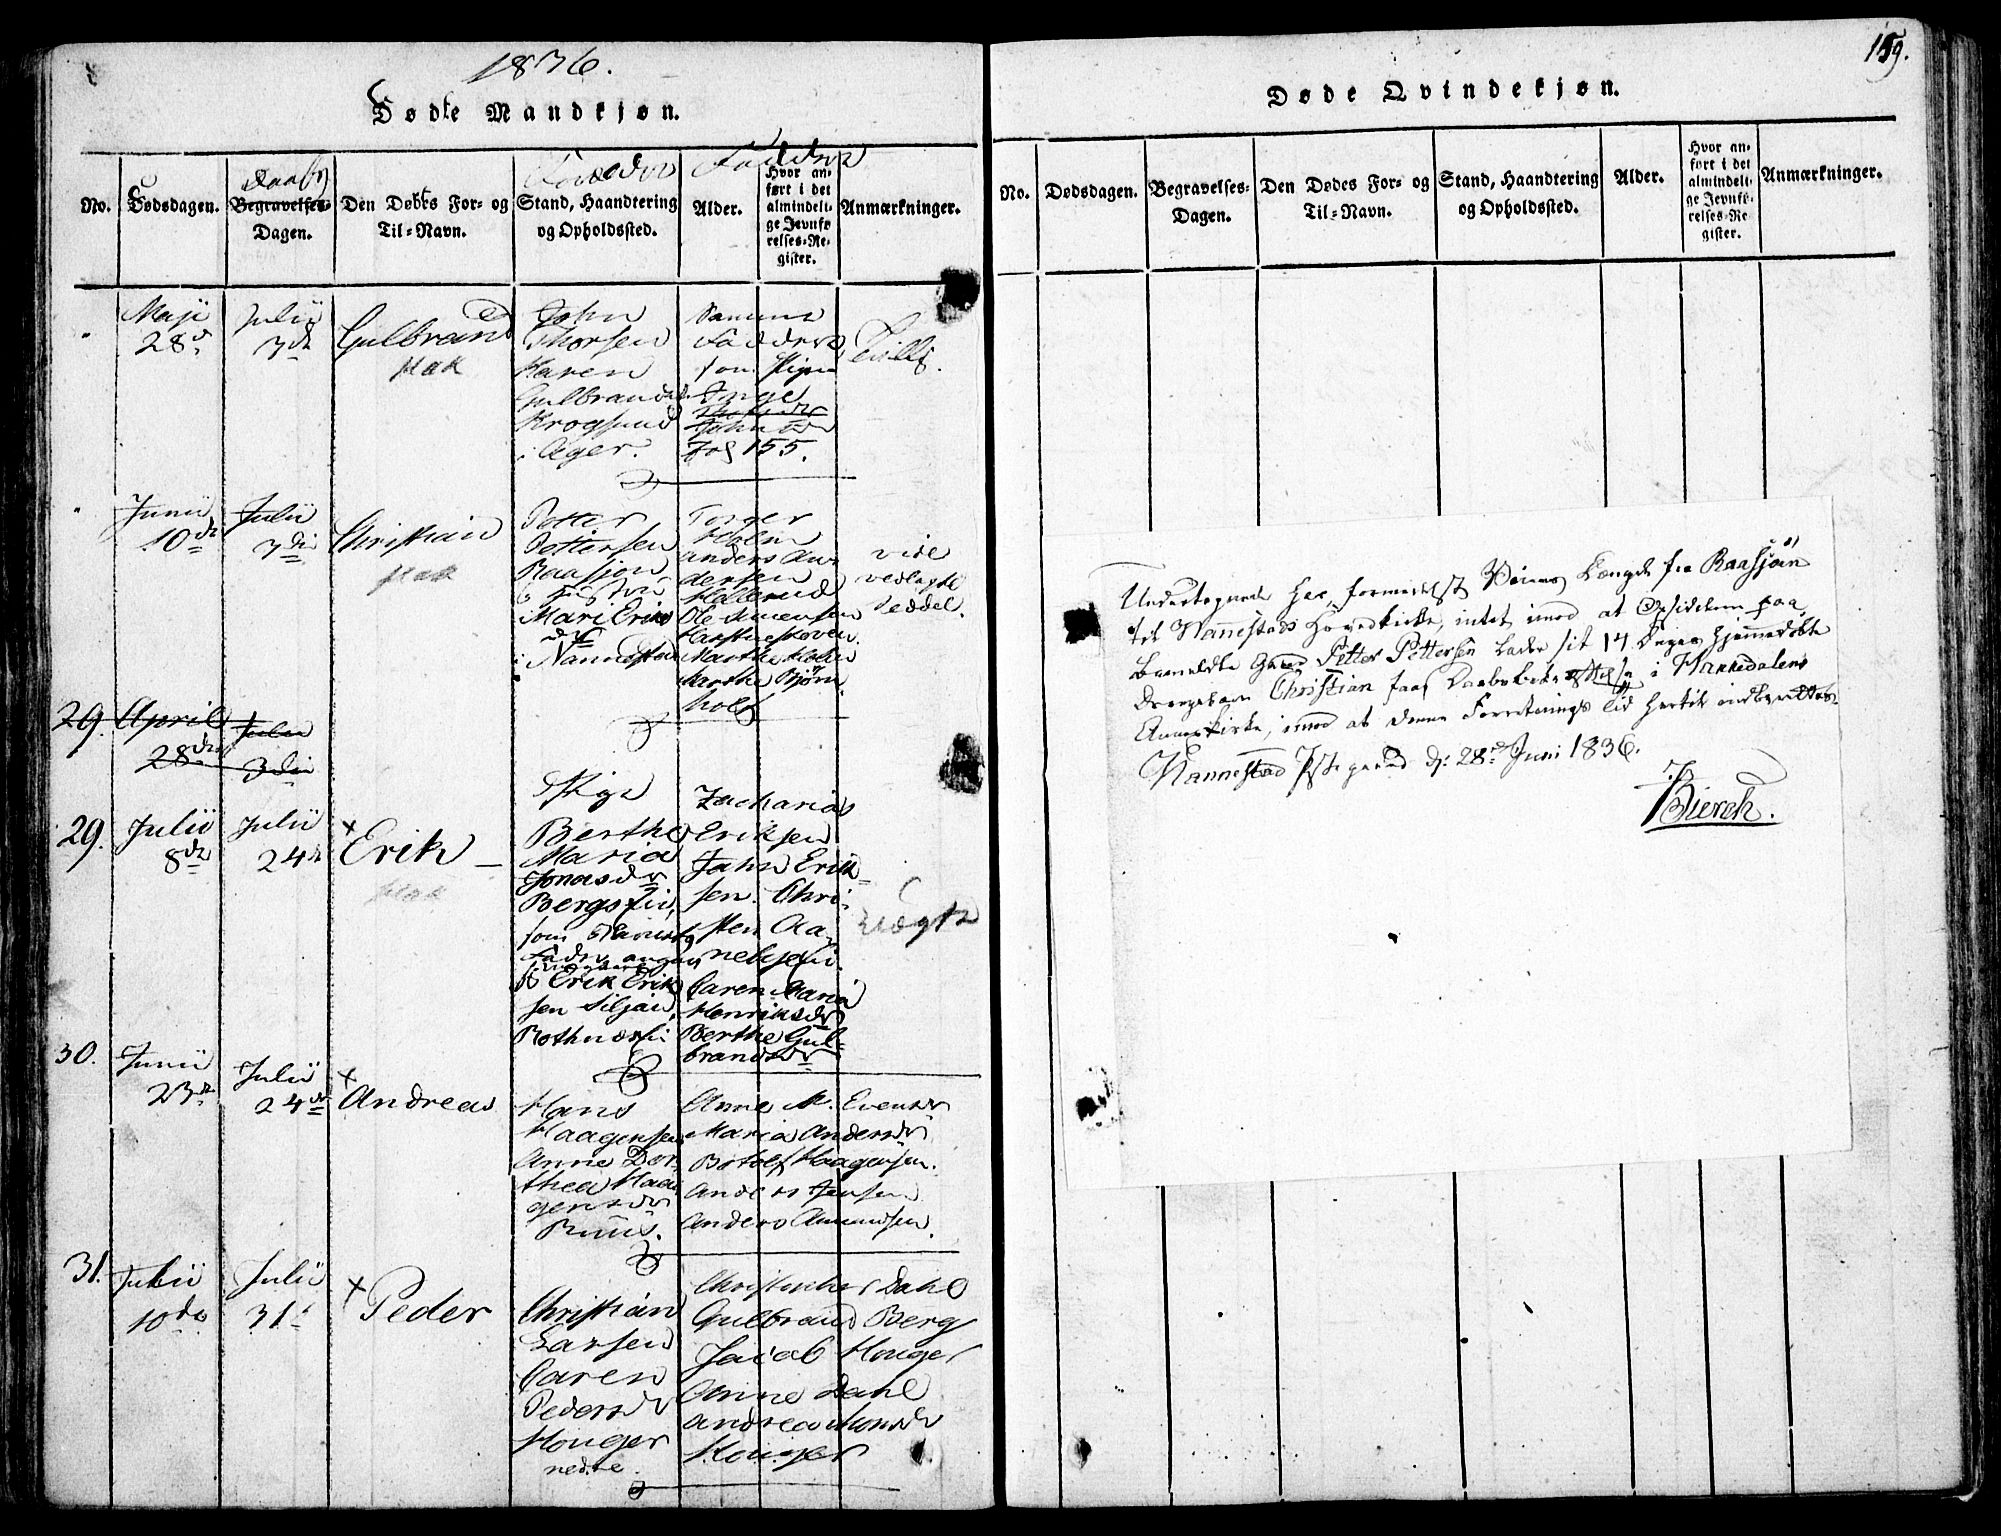 1836.
Døde Mandkjøn.
Daab
Fadder
No.
Dødsdagen.
Begravelses-
Dagen.
Den Dødes For- og
Til-Navn.
Stand, Haandtering
og Opholdssted.
Alder.
Hvor an-
ført i det
almindeli-
ge Jevnfø-
relses-Re-
gister.
Anmærkninger.
Maji
28
Julii
3d
Gulbrand
John
Thorsen
Karen
Gulbrandsd.
Krogsund
i Ager.
Samme
Faddere
som Pigen
Inge
Fol 155.
Tvilli
Junii
10d
Julii
3di
Christian
Petter
Pettersen
Raasjøn
Hustru
Mari Eriks
dr
i Nannestad
Torger
Holm
Anders An-
dersen
Møllerud
Ole Simensen
Marthe Holm
Marthe Bjørn-
holt
vide
vedlagte
Seddel.
29. April
28d
Julii
3di
29.
Julii
8d
Julii
24d
Erik
Pige
Berthe
Maria
Jonasdr
Bergsjøi,
som
Fader angav
Erik Erik
sen Siljøi,
Zacharias
Eriksen
John Erik-
sen. Chri-
sten Aa-
Caren Maria
Henriksdr
Berthe Gul-
brandsdr
Uægte
30.
Junii
23d
Julii
24d
Andreas
Hans
Haagensen
Anne Dor-
thea Haa-
gensdr
Ruus.
Anne M. Evensdr
Maria Andersdr
Botolf Haagensen.
Anders Jensen
Anders Amundsen.
31.
Julii
10de
Julii
31
Peder
Christian
Larsen
Caren
Pedersdr
Houger
nedre.
Christopher Dahl
Gulbrand Berg
Jacob Houger
Anne Dahl
Andrea Monsdr
Houger
159.
Døde Qvindekjøn.
No.
Dødsdagen.
Begravelses-
Dagen.
Den Dødes For- og
Til-Navn.
Stand, Haandtering
og Opholdssted.
Alder.
Hvor an-
ført i det
almindeli-
ge Jevnfø-
relses-Re-
gister.
Anmærkninger.
Undertegnede har, formedelst Veiens Længde fra Raasjøen
til Nannestads Hovedkirke, intet imod at Opsidderen paa
bemeldte Gaard Petter Pettersen lader sit 14 Dager hjemmedøbte
Drengebarn Christian faae Daabsbekræftelse i Hakkedalens
Annexkirke, imod at denne Forretnings Tid hertil indberettes.
Nannestad Præstegaard d: 28de Juni 1836.
Bierch.